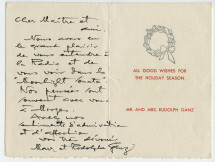 Cher Maître et
ami.
Nous avons eu
le grand plaisir
de vous entendre à
la Radio et de
vous voir dans la
"Moonlight Sonata"
Nos pensées sont
souvent avec vous
Avec nos
sentiments d'admiration
et d'affection
vos très dévoués
Mary et Rudolph Ganz
ALL GOOD WISHES FOR
THE HOLIDAY SEASON
MR. AND MRS. RUDOLPH GANZ